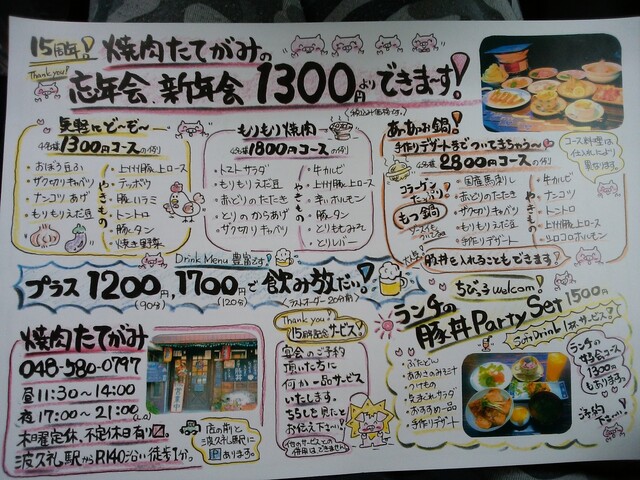 15周年!
Thank you!
焼肉たてがみの
忘年会、新年会 1300円よりできます!
(税込み価格です。)
気軽にど~ぞ~
4名様 1300円コースの例
・おぼろ豆ふ
・ザクザクキャベツ
・ナンコツあげ
・もりもりえだ豆
やきもの
・上州豚上ロース
・テッポウ
・豚ハラミ
・トントロ
・豚タン
・焼き野菜
もりもり焼肉
4名様 1800円コースの例
・トマトサラダ
・もりもりえだ豆
・赤どりのたたき
・とりのからあげ
・ザク切りキャベツ
やきもの
・牛カルビ
・上州豚上ロース
・辛いホルモン
・豚タン
・とりももみそ
・とりレバー
あつあつお鍋!
手作りデザートまでついてきちゃう~
4名様 2800円コースの例
コラーゲンたっぷり!
もつ鍋
・国産馬刺し
・赤どりのたたき
・ザク切りキャベツ
・もりもりえだ豆
・手作りデザート
やきもの
・牛カルビ
・ナンコツ
・トントロ
・上州豚上ロース
・シロコロホルモン
大人気! 豚丼を入れることもできます!
コース料理は
仕入れにより
異なります。
Drink Menu 豊富です!
プラス1200円, 1700円で飲み放だい!
(90分) (120分) ラストオーダー20分前
焼肉たてがみ
048-580-0797
昼 11:30~14:00
夜 17:00~21:00 (L.O)
木曜定休、不定休日有り
波久礼駅からR140沿い徒歩1分。
店の前と
波久礼駅に
Pあります。
Thank you!
15周年記念サービス!
宴会のご予約
頂いた方に
何か一品サービス
いたします。
ちらしを見たと
お伝え下さ~い!
他のサービスとの
併用はできません
ちびっ子 welcom!
ランチの
豚丼 Party Set 1500円
Soft Drink 1杯サービス♪
・ぶたどん
・あおさのみそ汁
・つけもの
・気まぐれサラダ
・おすすめ一品
・手作りデザート
ランチの
宴会コース
1300円
もあります。
ご予約
下さ~い!